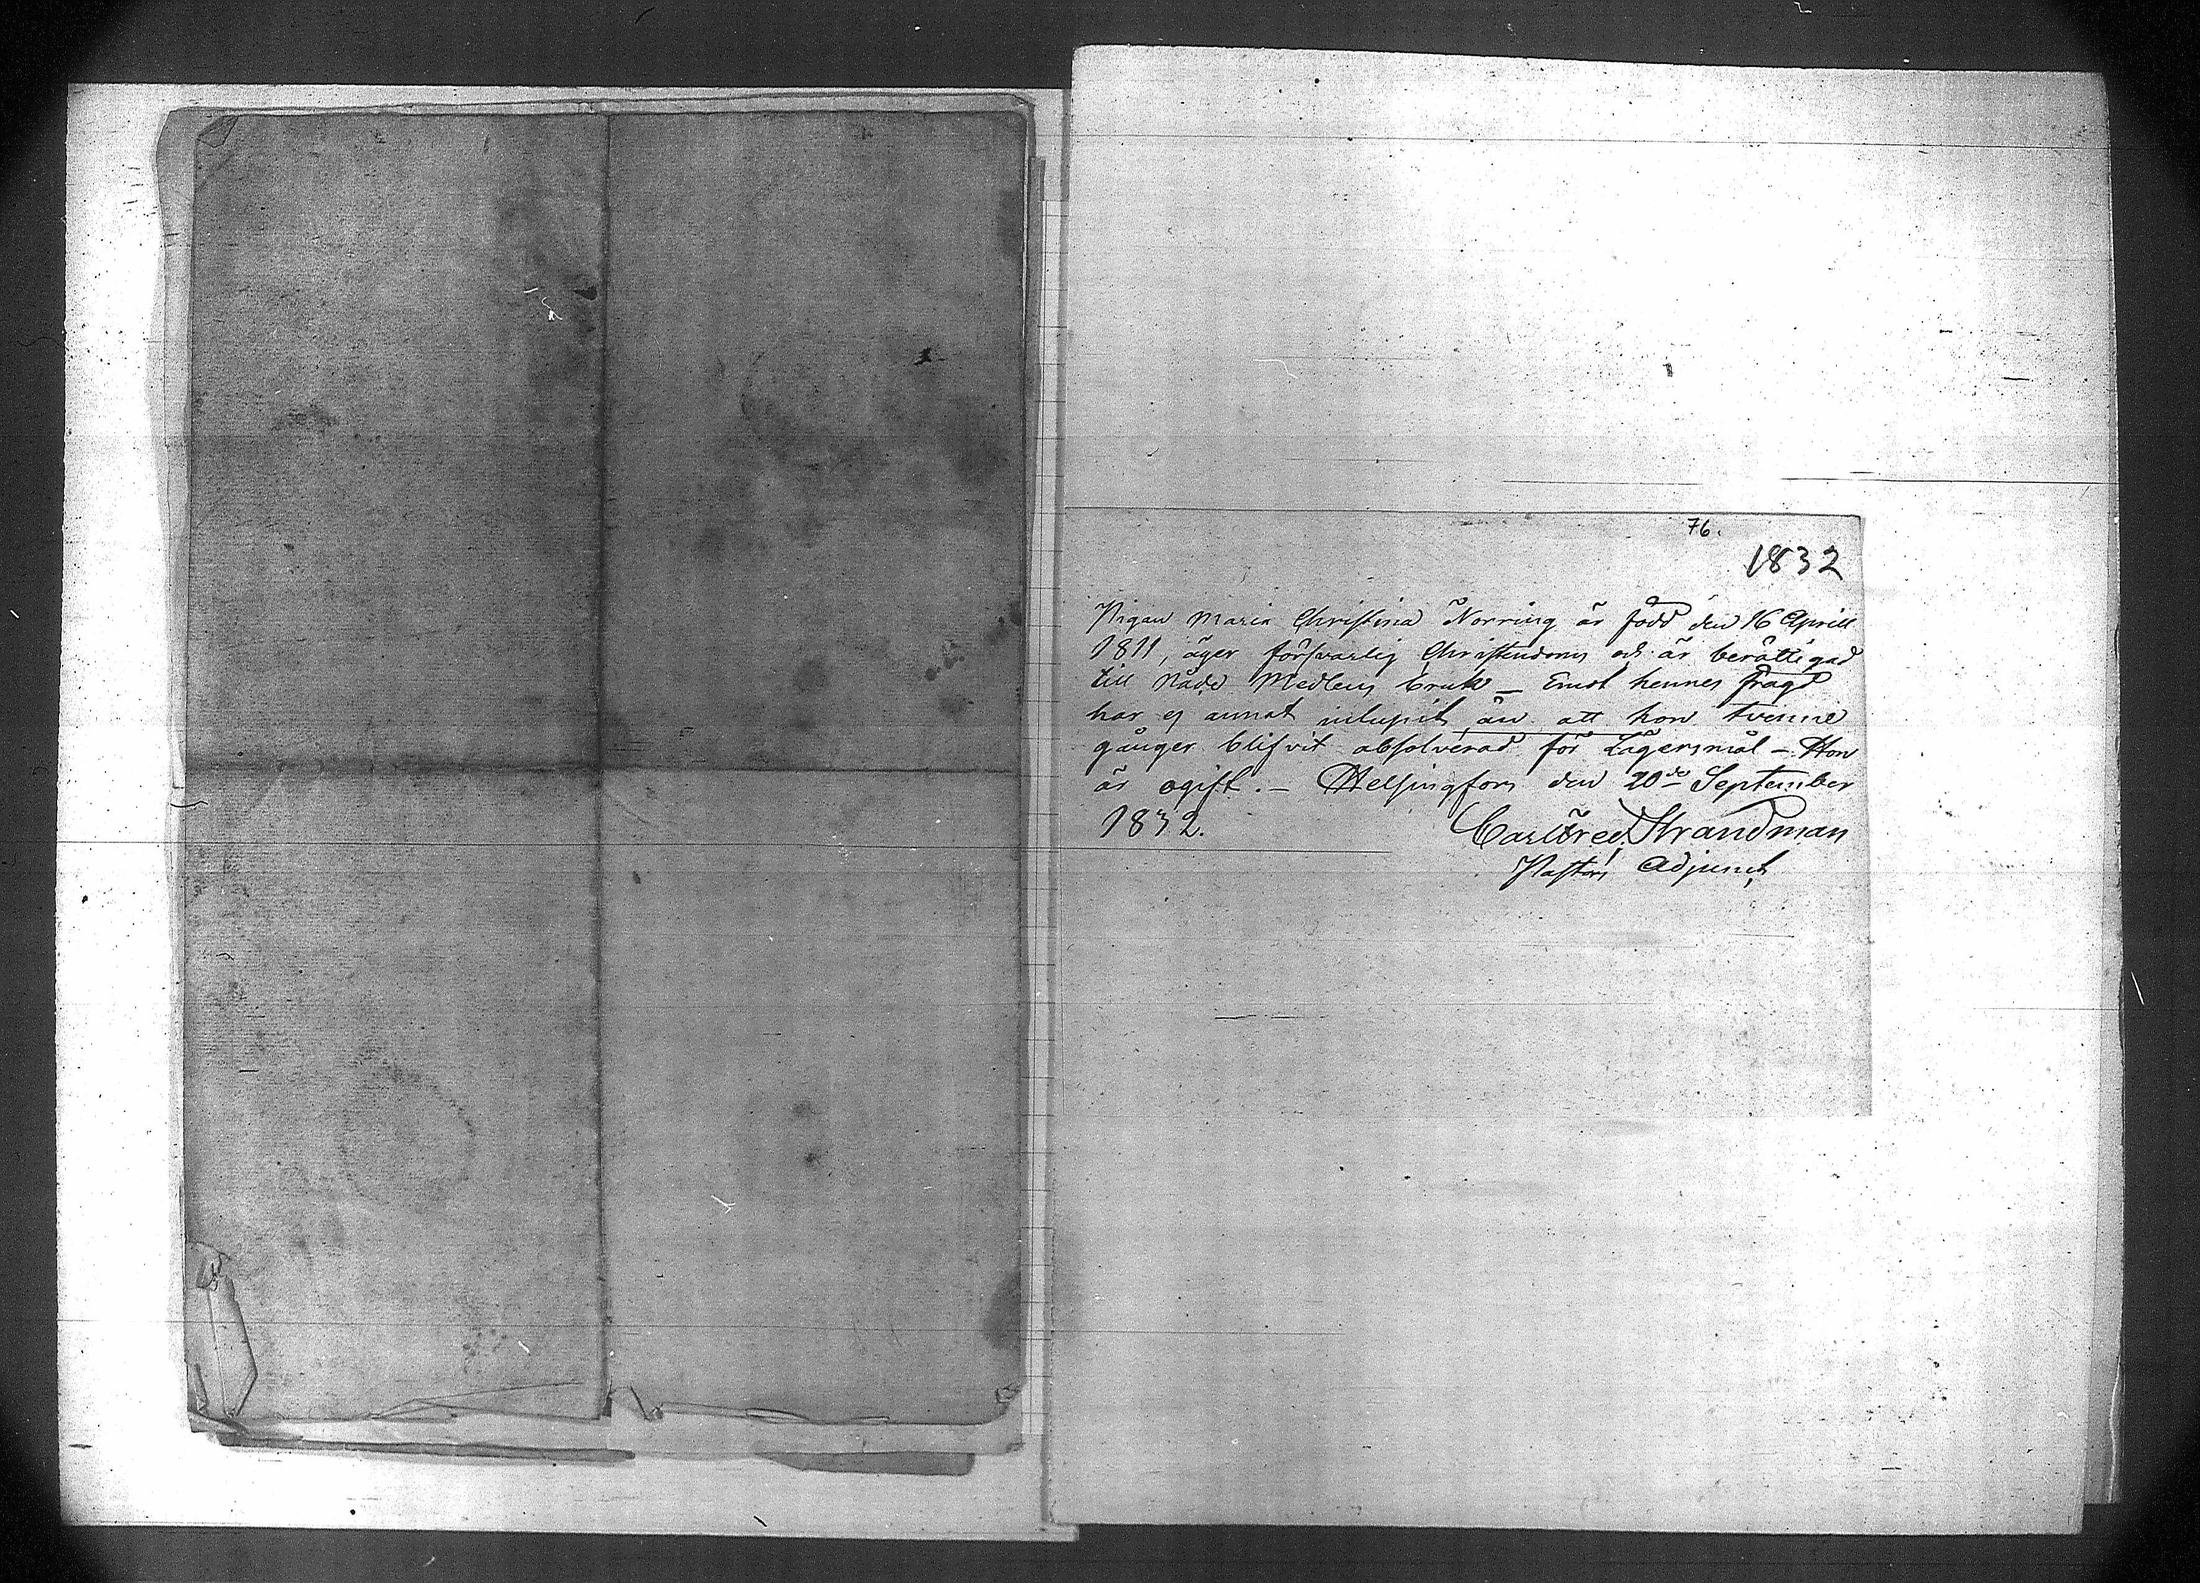 76.
1832
Pigan Maria Christina Norring är född den 16 Aprill
1811, äger försvarlig Christendom och är berättigad
till Nåde Medlens bruk – Emot hennes frägd
har ej annat inlupit, än att hon tvenne
gånger blifvit absolverad för Lägersmål – Hon
är ogift. – Helsingfors den 20de September
1832.
Carl Fred. Strandman
Pastors Adjunct